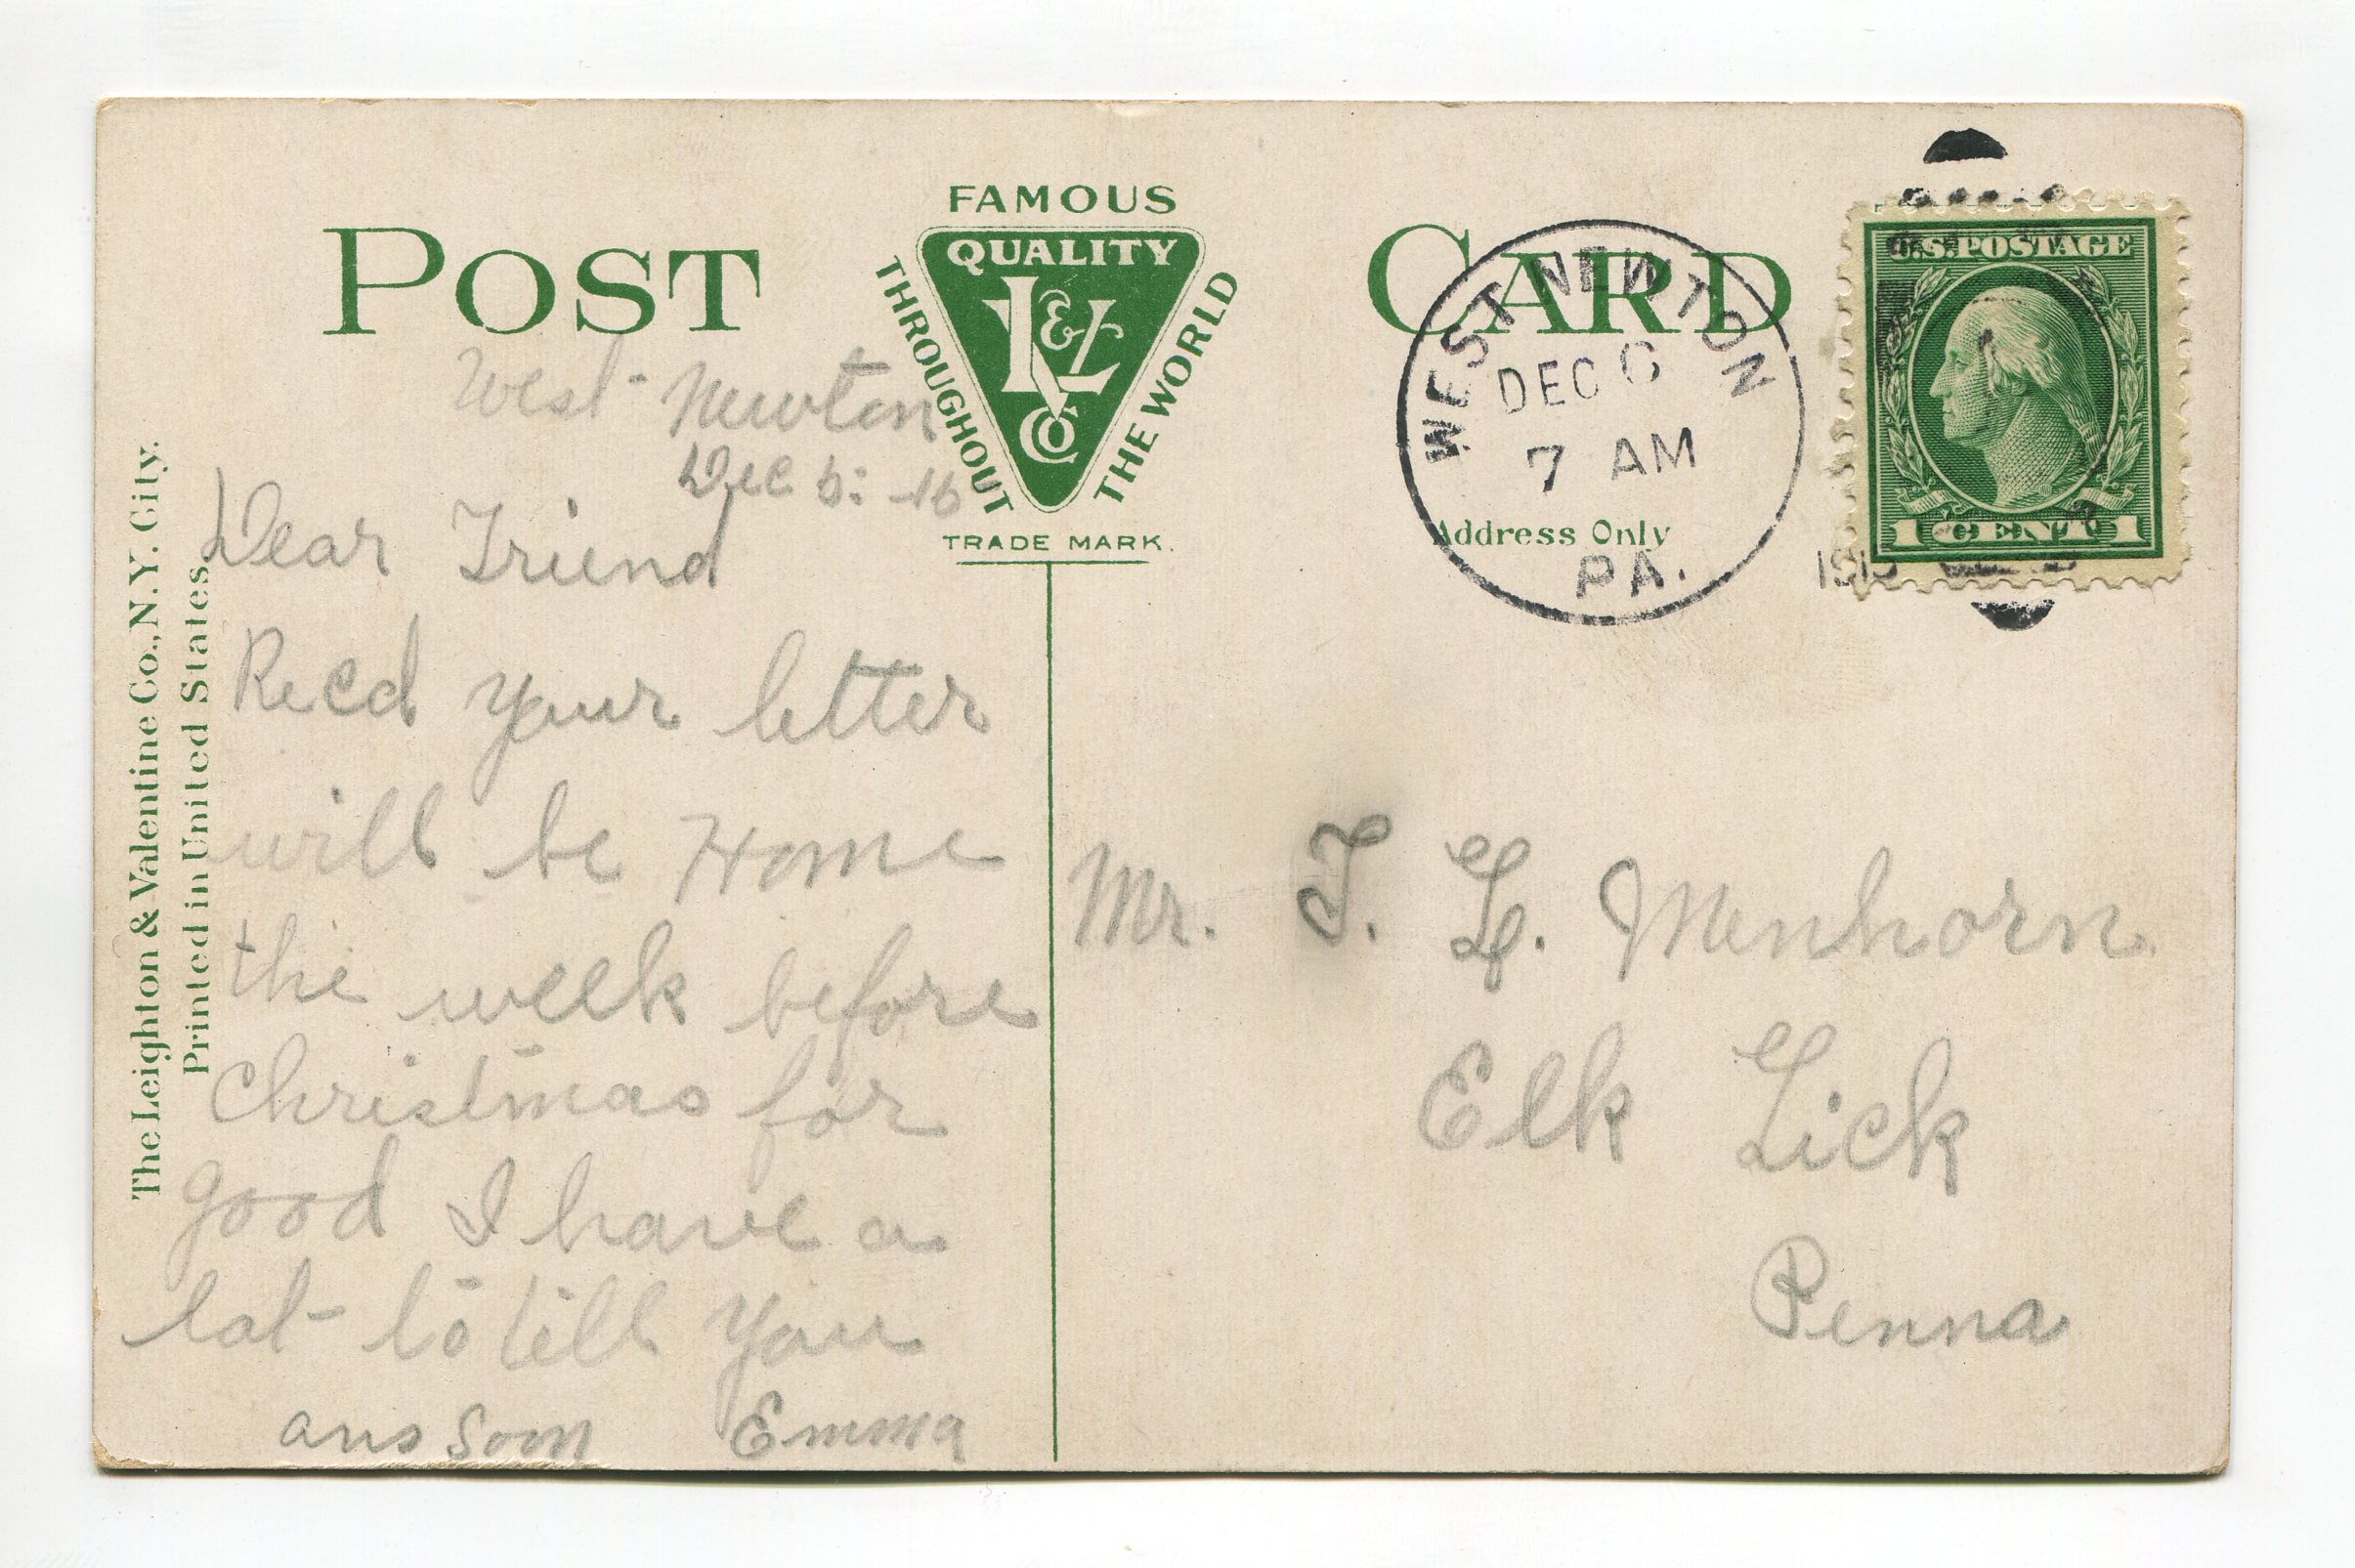 POST CARD
FAMOUS
QUALITY
THROUGHOUT
THE WORLD
L&V
Co
TRADE MARK.
The Leighton & Valentine Co., N.Y. City.
Printed in United States.
West Newton
Dec 6: 16
Dear Friend
Recd your letter
will be Home
the week before
Christmas for
good I have a
lot to tell you
ans soon Emma
WEST NEWTON
DEC 6
7 AM
PA.
Address Only
U.S. POSTAGE
1 CENT 1
Mr. T. L. Menhorn
Elk Lick
Penna